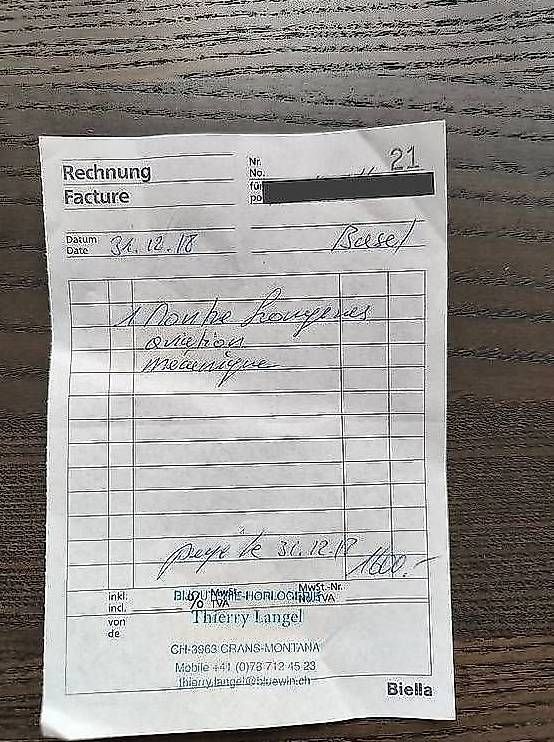 21
Rechnung
Facture
Nr.
No.
für
po
Datum
Date
31.12.18
Basel
1 Montre Longines
aviation
mécanique
payé le 31.12.18
1600.-
inkl.
incl.
% MwSt.
TVA
MwSt.-Nr.
No. TVA
von
de
BIJOUTERIE-HORLOGERIE
Thierry Langel
CH-3963 CRANS-MONTANA
Mobile +41 (0)78 712 45 23
thierry.langel@bluewin.ch
Biella